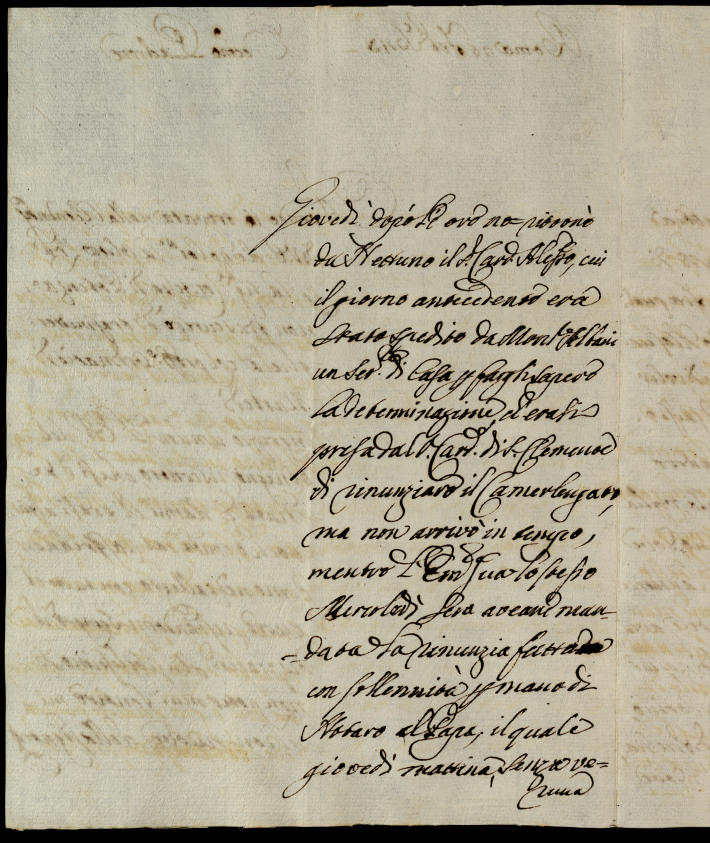 Giovedì dopo le ore no= ritornò
da Nettuno il S. Card. Aless.o, cui
il giorno antecedente era
stato spedito da Mons.r Albani
un Ser.re di Casa p fargli sapere
la determinazione, ch'erasi
presa dal S. Card. di S. Clemente
di rinunziare il Camerlengato,
ma non arrivò in tempo,
mentre l'Em.za Sua lo stesso
Mercoledì sera aveane man-
data la rinunzia fatta
con sollennità p mano di
Notaro al Papa, il quale
giovedì mattina, senza ve=
runa